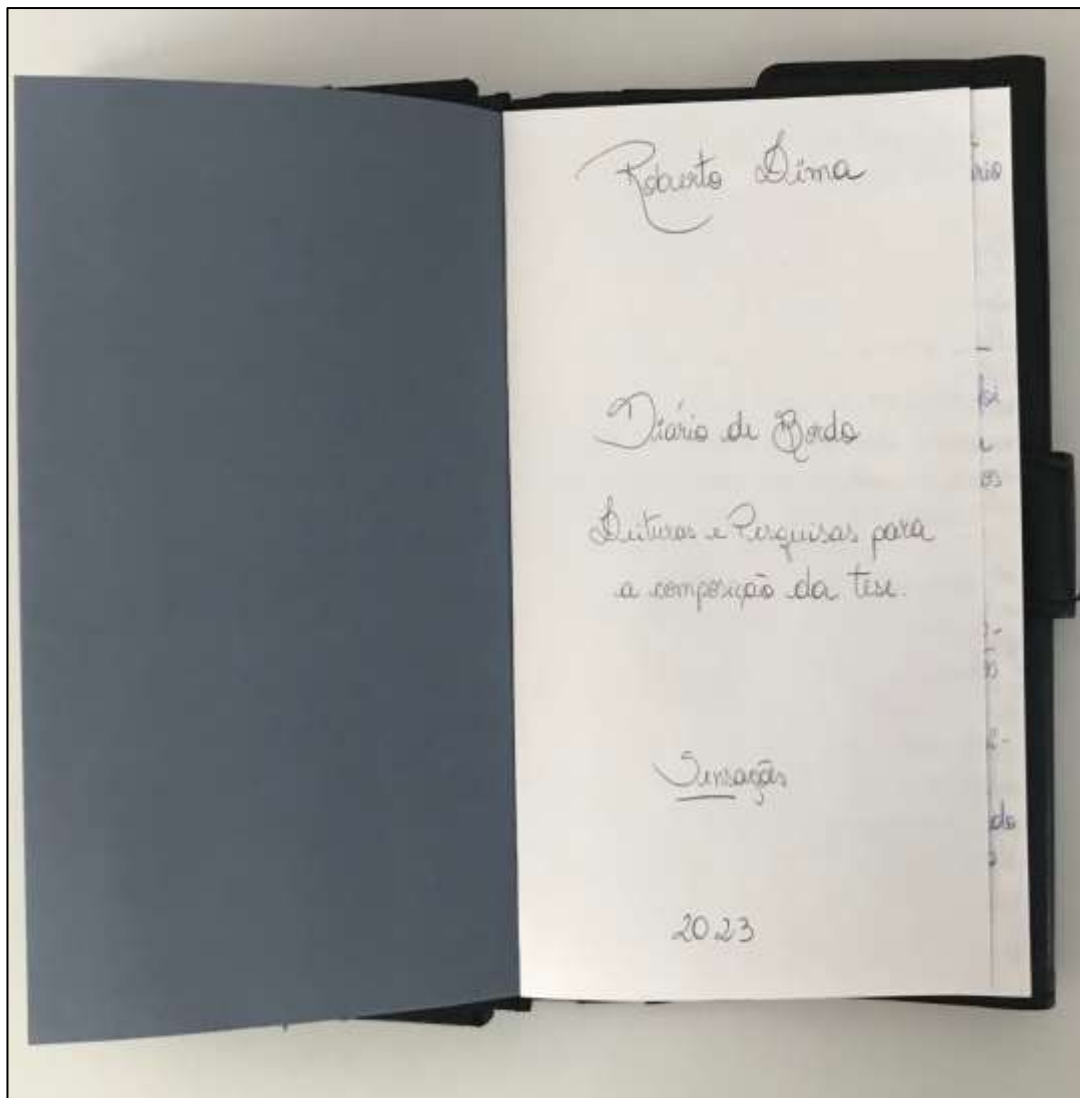 Roberto Lima
Diário de Bordo
Leituras e Pesquisas para
a composição da tese.
Sensações
2023